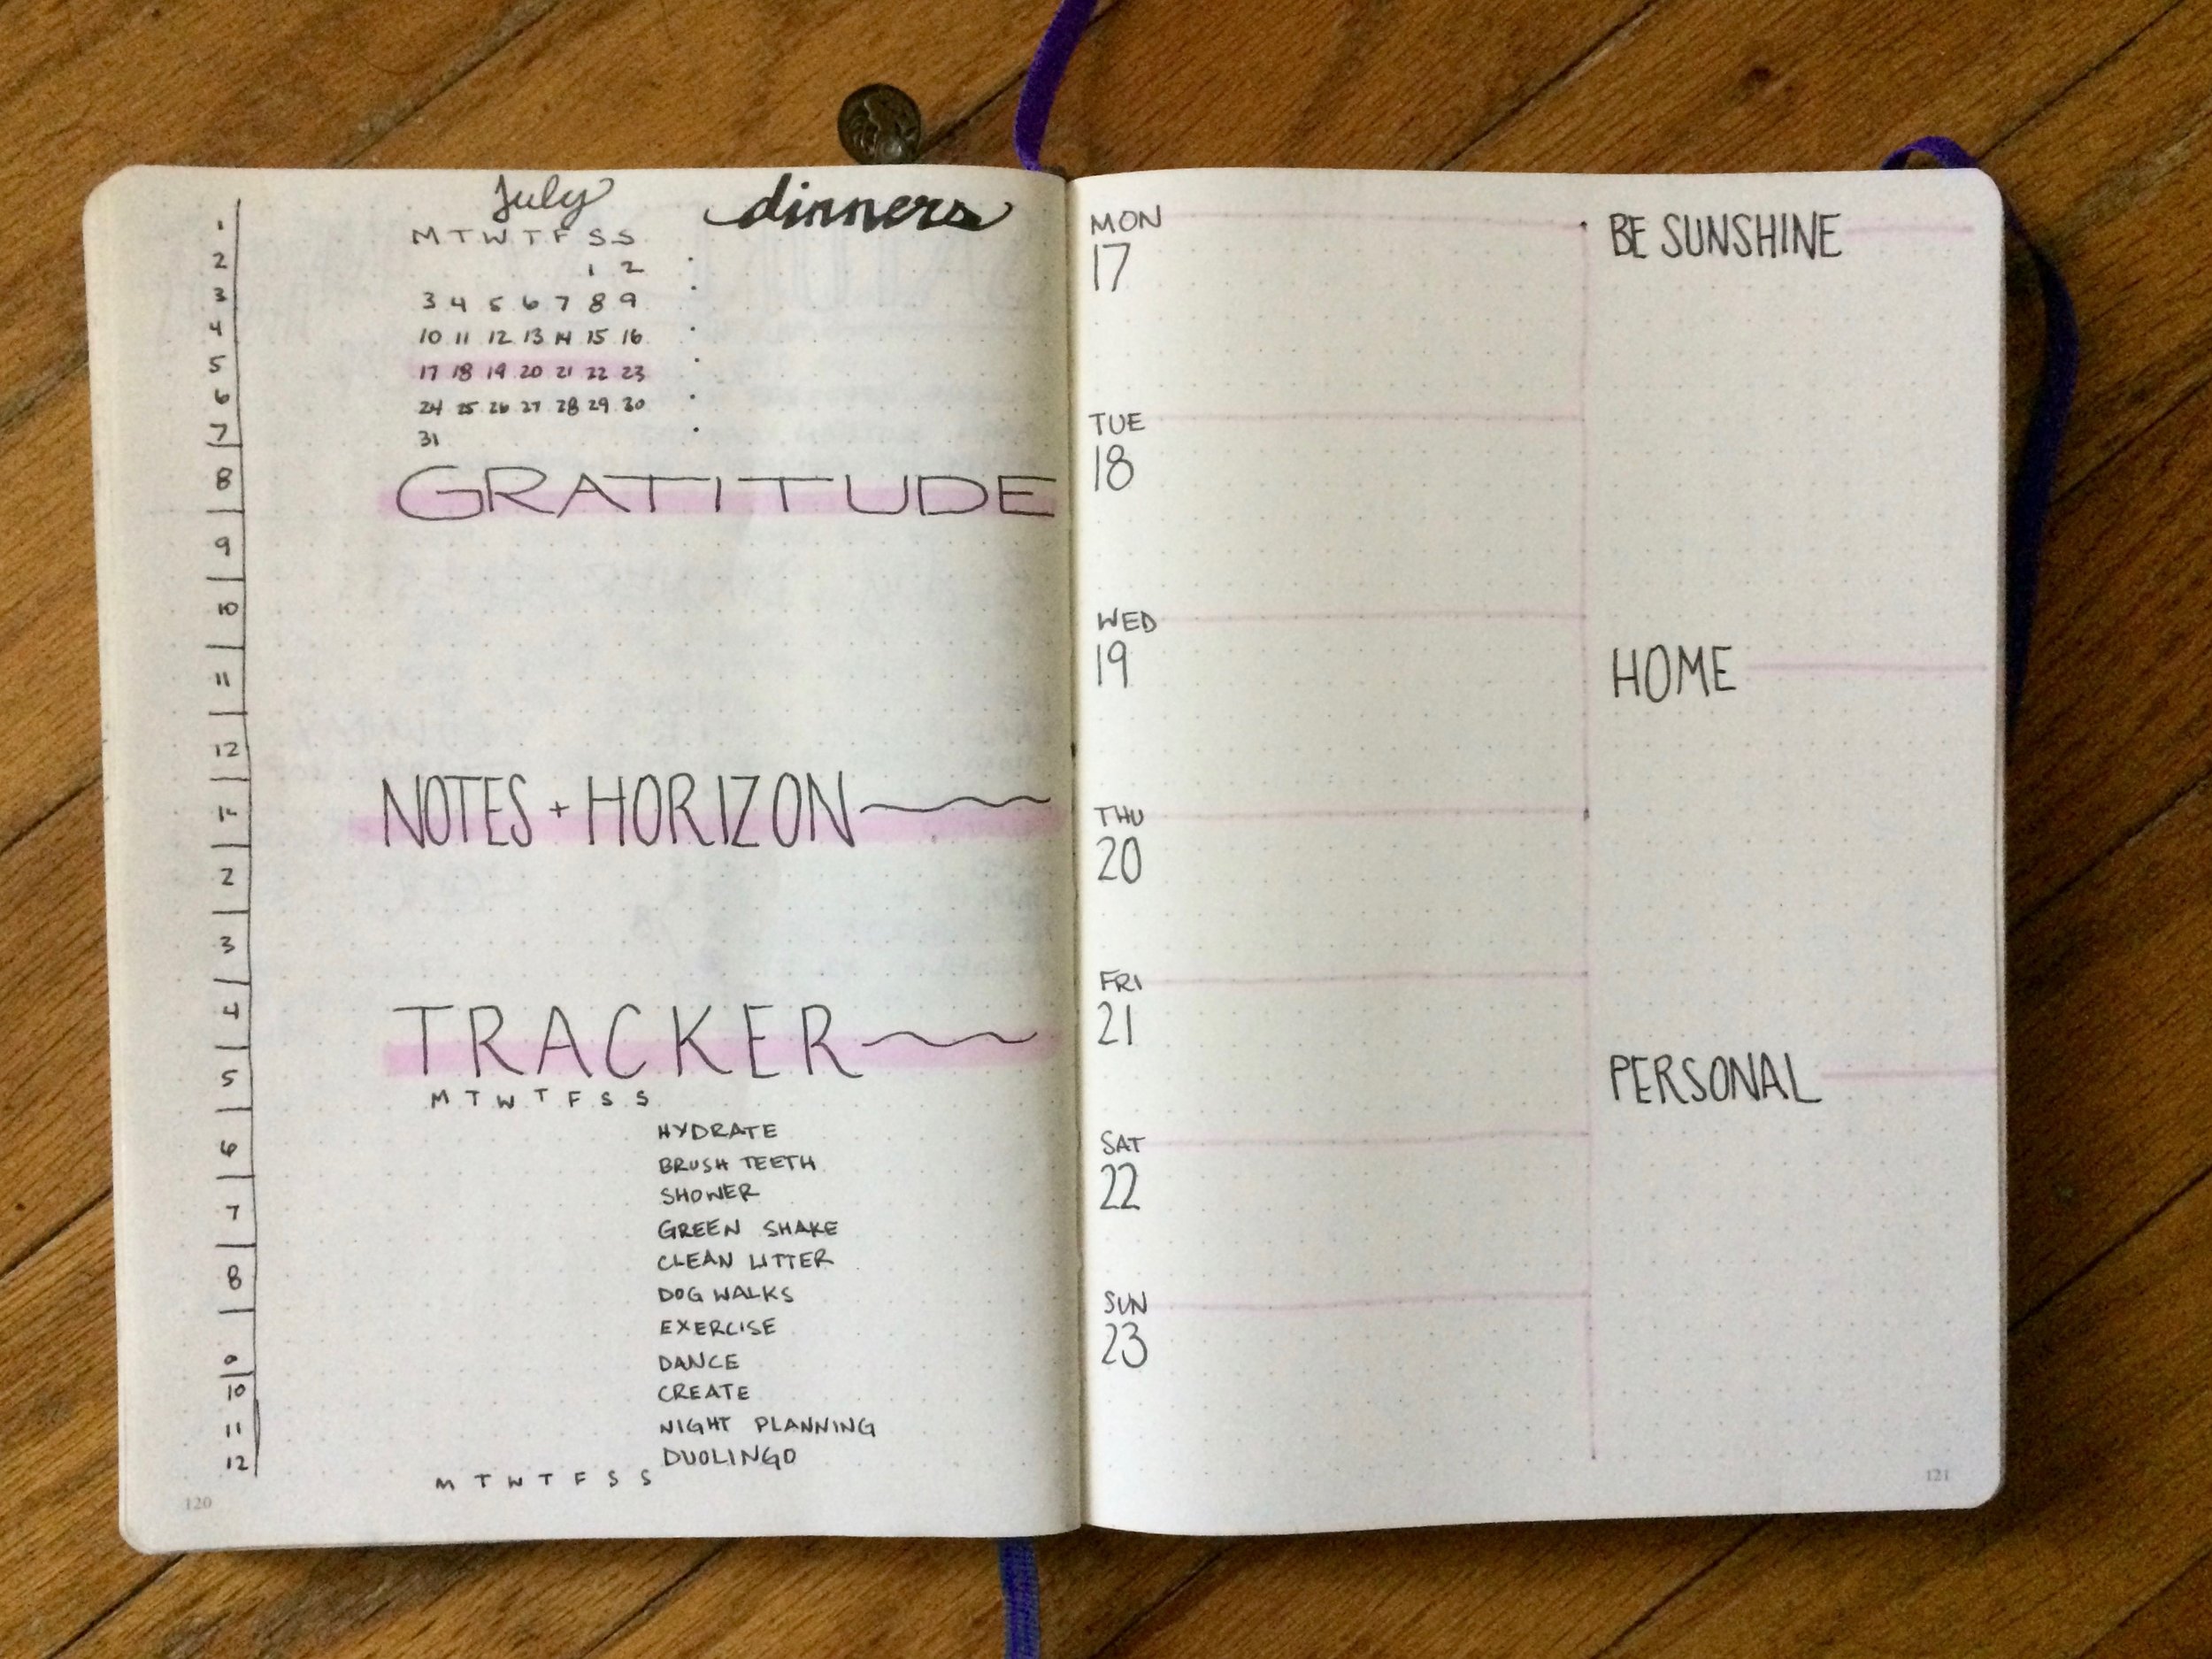 1
2
3
4
5
6
7
8
9
10
11
12
1
2
3
4
5
6
7
8
9
10
11
12
July
M T W T F S S
1 2
3 4 5 6 7 8 9
10 11 12 13 14 15 16
17 18 19 20 21 22 23
24 25 26 27 28 29 30
31
dinners
GRATITUDE
NOTES + HORIZON
TRACKER
M T W T F S S
HYDRATE
BRUSH TEETH
SHOWER
GREEN SHAKE
CLEAN LITTER
DOG WALKS
EXERCISE
DANCE
CREATE
NIGHT PLANNING
DUOLINGO
M T W T F S S
120
MON
17
TUE
18
WED
19
THU
20
FRI
21
SAT
22
SUN
23
BE SUNSHINE
HOME
PERSONAL
121